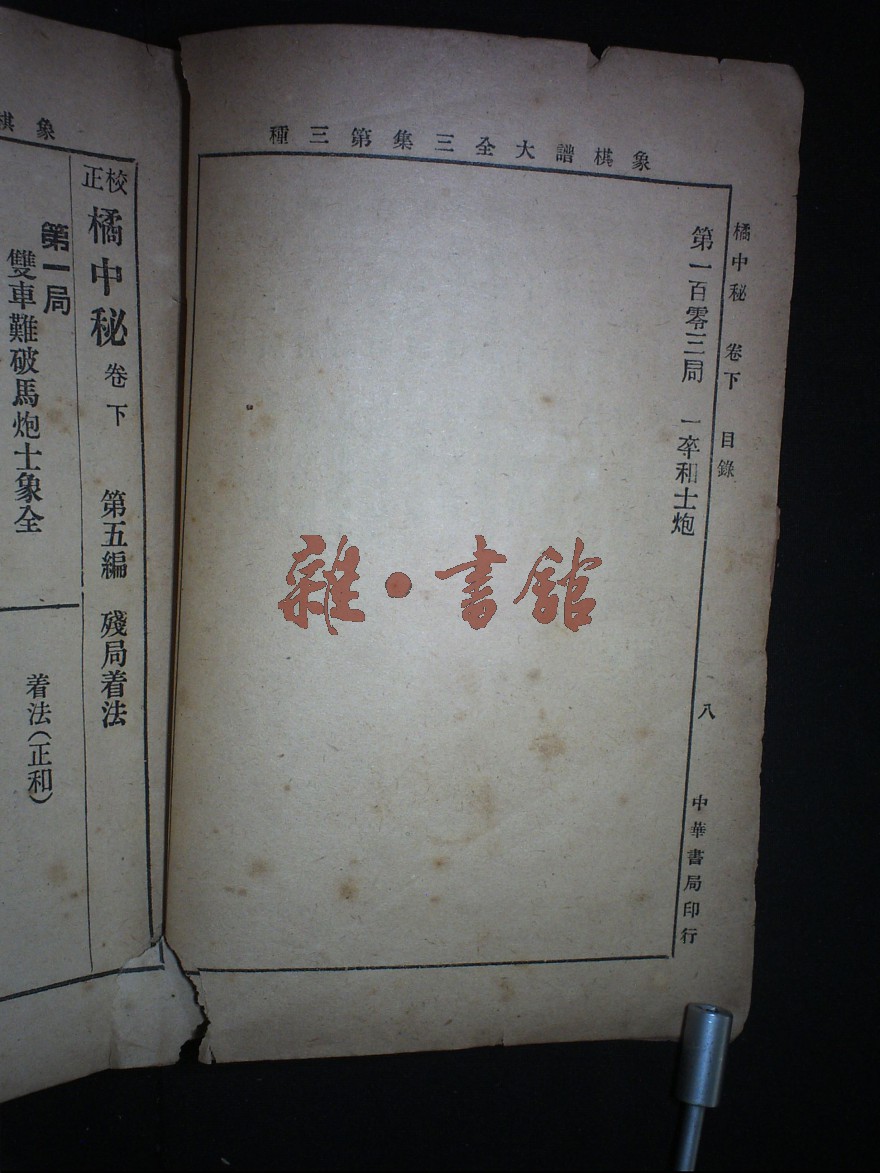 象棋譜大全三集第三種
橘中秘 卷下 目錄
八
中華書局印行
第一百零三局 一卒和士炮
雜·書館
象棋
校正 橘中秘 卷下 第五編 殘局着法
第一局
雙車難破馬炮士象全
着法(正和)